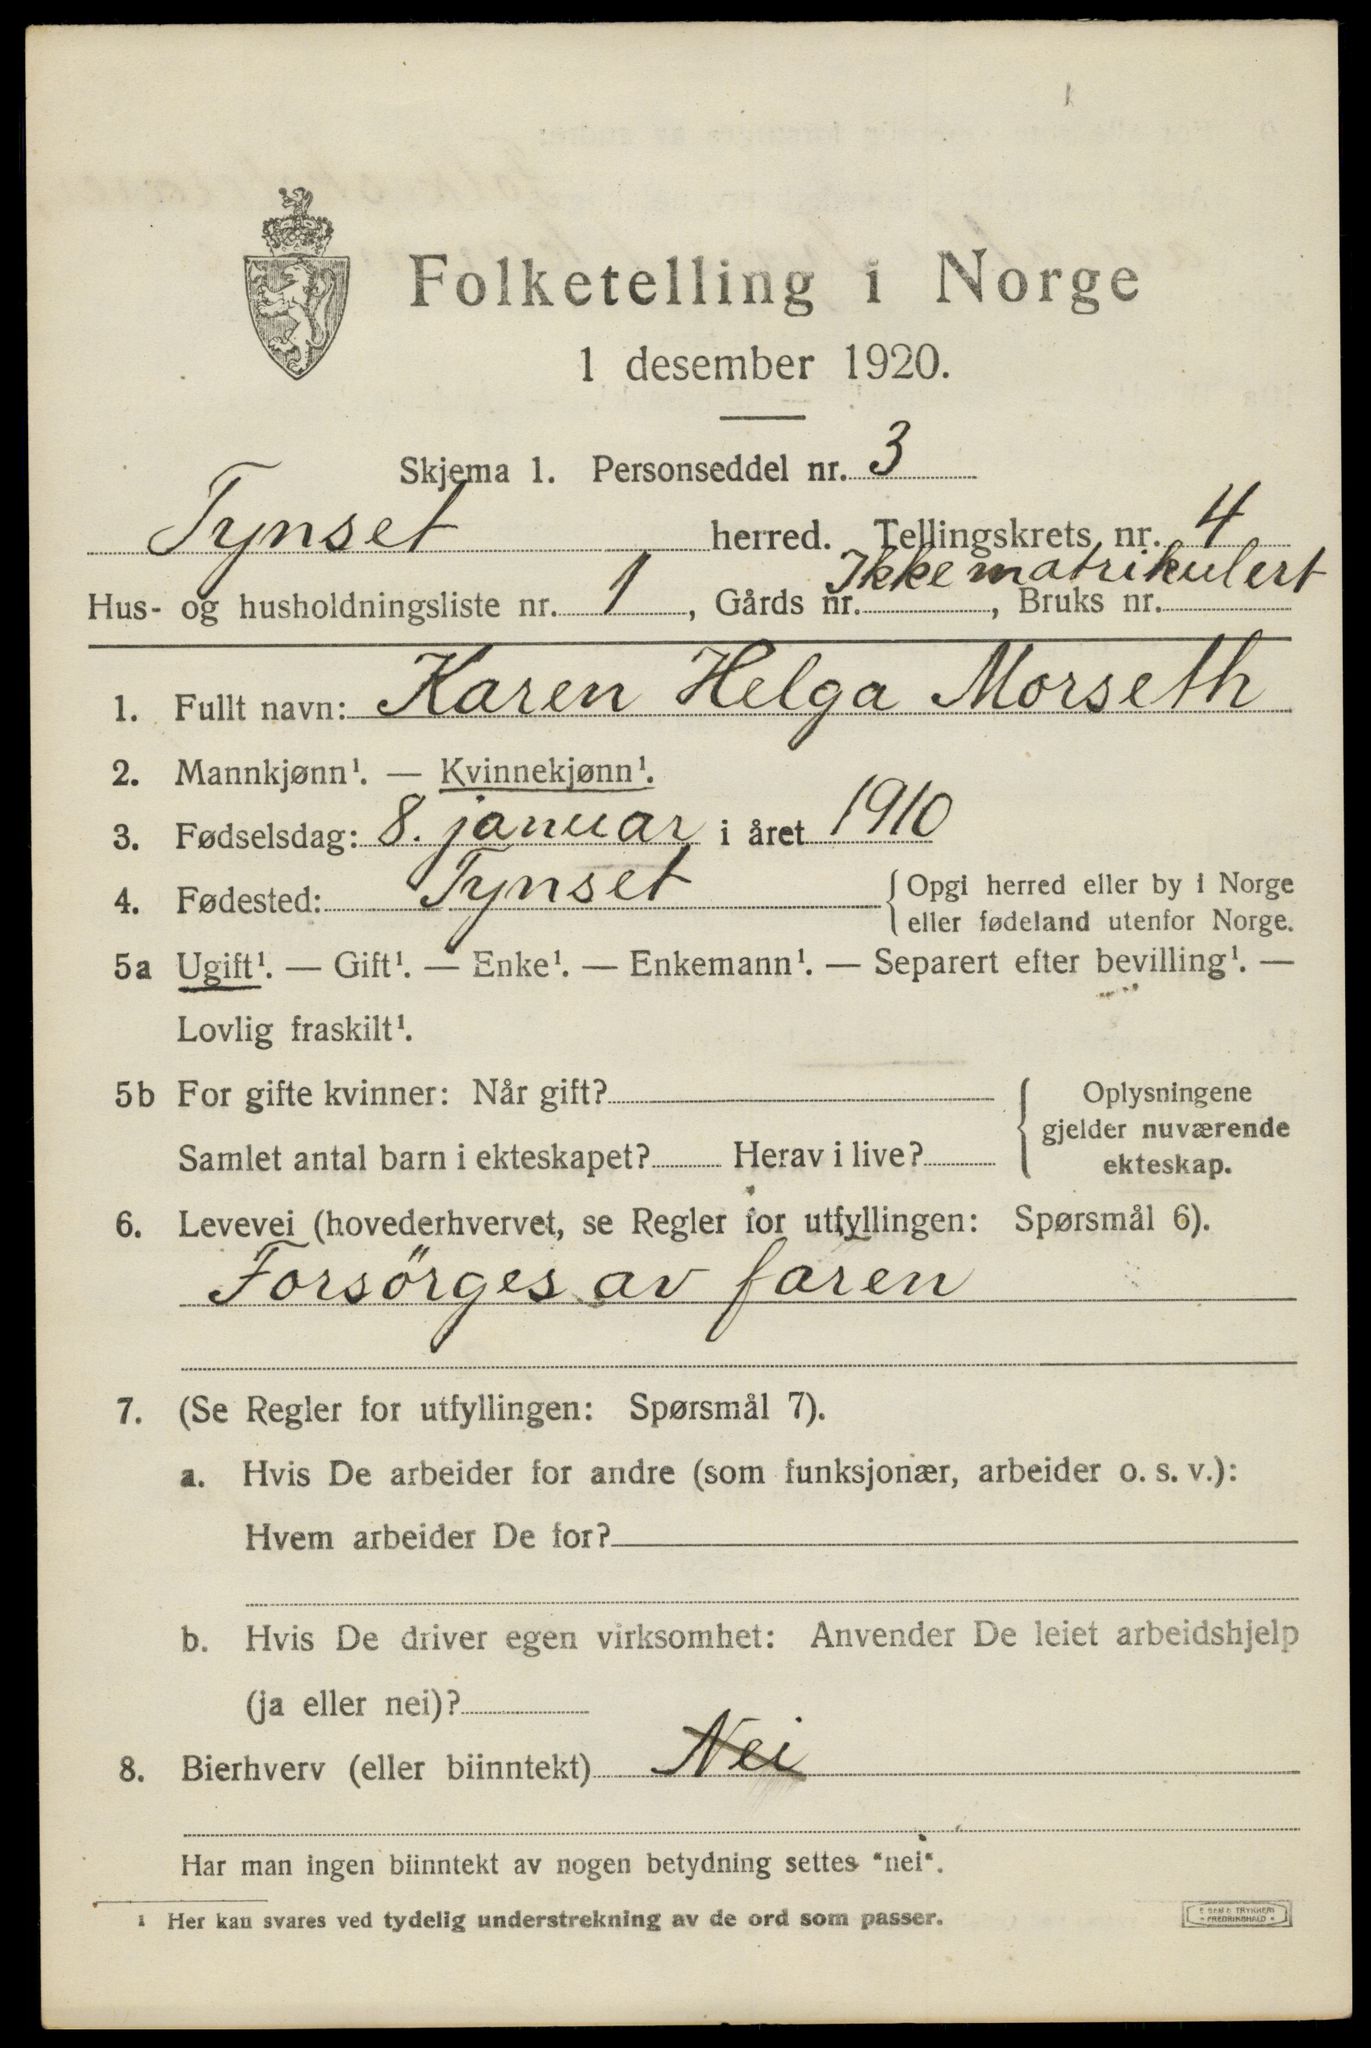 Folketelling i Norge
1 desember 1920.
Skjema 1. Personseddel nr. 3
Tynset herred. Tellingskrets nr. 4
Hus- og husholdningsliste nr. 1, Gårds nr. Ikke matrikulert, Bruks nr.
1. Fullt navn: Karen Helga Morseth
2. Mannkjønn¹. — Kvinnekjønn¹.
3. Fødselsdag: 8. januar i året 1910
4. Fødested: Tynset {Opgi herred eller by i Norge
eller fødeland utenfor Norge.
5a Ugift¹. — Gift¹. — Enke¹. — Enkemann¹. — Separert efter bevilling¹. —
Lovlig fraskilt¹.
5b For gifte kvinner: Når gift?
Samlet antal barn i ekteskapet? Herav i live?
{Oplysningene
gjelder nuværende
ekteskap.
6. Levevei (hovederhvervet, se Regler for utfyllingen: Spørsmål 6).
Forsörges av faren
7. (Se Regler for utfyllingen: Spørsmål 7).
a. Hvis De arbeider for andre (som funksjonær, arbeider o. s. v.):
Hvem arbeider De for?
b. Hvis De driver egen virksomhet: Anvender De leiet arbeidshjelp
(ja eller nei)?
8. Bierhverv (eller biinntekt) Nei
Har man ingen biinntekt av nogen betydning settes "nei".
¹ Her kan svares ved tydelig understrekning av de ord som passer.
TRYKKERI
FREDRIKSHALD